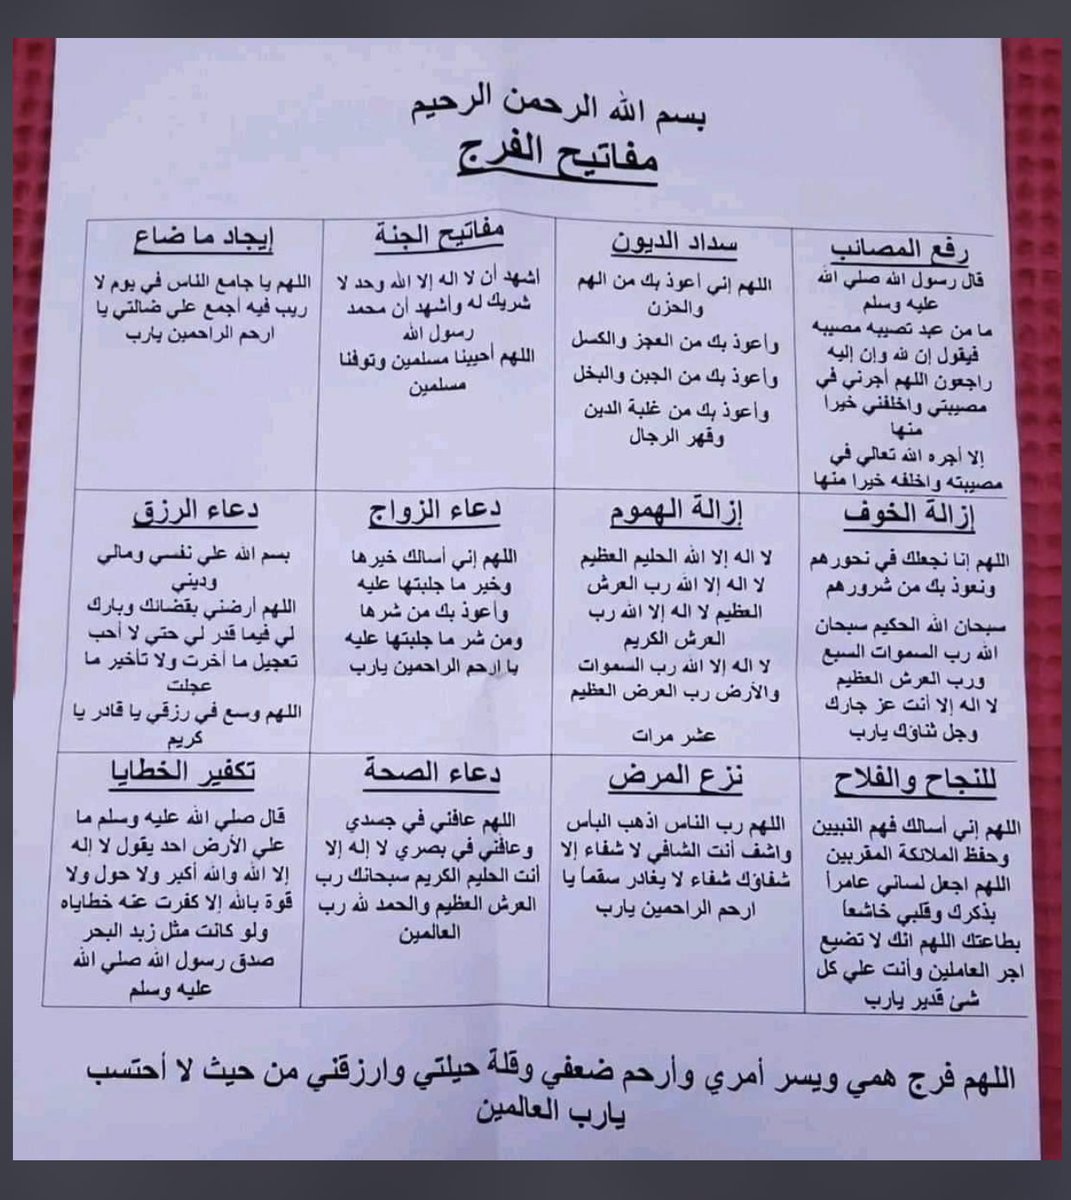 بسم الله الرحمن الرحيم
مفاتيح الفرج
رفع المصائب
قال رسول الله صلي الله
عليه وسلم
ما من عبد تصيبه مصيبه
فيقول إن لله وإن إليه
راجعون اللهم أجرني في
مصيبتي واخلفني خيرا
منها
إلا أجره الله تعالي في
مصيبته واخلفه خيرا منها
سداد الديون
اللهم إني أعوذ بك من الهم
والحزن
وأعوذ بك من العجز والكسل
وأعوذ بك من الجبن والبخل
وأعوذ بك من غلبة الدين
وقهر الرجال
مفاتيح الجنة
أشهد أن لا اله إلا الله وحد لا
شريك له وأشهد أن محمد
رسول الله
اللهم أحيينا مسلمين وتوفنا
مسلمين
إيجاد ما ضاع
اللهم يا جامع الناس في يوم لا
ريب فيه أجمع علي ضالتي يا
ارحم الراحمين يارب
إزالة الخوف
اللهم إنا نجعلك في نحورهم
ونعوذ بك من شرورهم
سبحان الله الحكيم سبحان
الله رب السموات السبع
ورب العرش العظيم
لا اله إلا أنت عز جارك
وجل ثناؤك يارب
إزالة الهموم
لا اله إلا الله الحليم العظيم
لا اله إلا الله رب العرش
العظيم لا اله إلا الله رب
العرش الكريم
لا اله إلا الله رب السموات
والأرض رب العرض العظيم
عشر مرات
دعاء الزواج
اللهم إني أسالك خيرها
وخير ما جلبتها عليه
وأعوذ بك من شرها
ومن شر ما جلبتها عليه
يا ارحم الراحمين يارب
دعاء الرزق
بسم الله علي نفسي ومالي
وديني
اللهم أرضني بقضائك وبارك
لي فيما قدر لي حتي لا أحب
تعجيل ما أخرت ولا تأخير ما
عجلت
اللهم وسع في رزقي يا قادر يا
كريم
للنجاح والفلاح
اللهم إني أسالك فهم النبيين
وحفظ الملائكة المقربين
اللهم اجعل لساني عامراً
بذكرك وقلبي خاشعاً
بطاعتك اللهم انك لا تضيع
اجر العاملين وأنت علي كل
شئ قدير يارب
نزع المرض
اللهم رب الناس اذهب البأس
واشف أنت الشافي لا شفاء إلا
شفاؤك شفاء لا يغادر سقماً يا
ارحم الراحمين يارب
دعاء الصحة
اللهم عافني في جسدي
وعافني في بصري لا إله إلا
أنت الحليم الكريم سبحانك رب
العرش العظيم والحمد لله رب
العالمين
تكفير الخطايا
قال صلي الله عليه وسلم ما
علي الأرض احد يقول لا إله
إلا الله والله أكبر ولا حول ولا
قوة بالله إلا كفرت عنه خطاياه
ولو كانت مثل زبد البحر
صدق رسول الله صلي الله
عليه وسلم
اللهم فرج همي ويسر أمري وأرحم ضعفي وقلة حيلتي وارزقني من حيث لا أحتسب
يارب العالمين